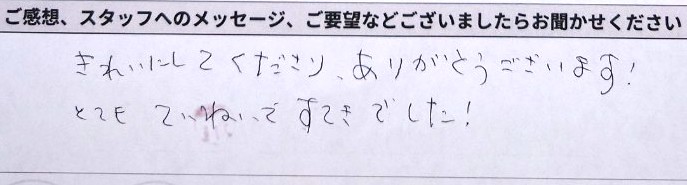 ご感想、スタッフへのメッセージ、ご要望などございましたらお聞かせください
きれいにしてくださり、ありがとうございます!
とても ていねいで すてきでした!